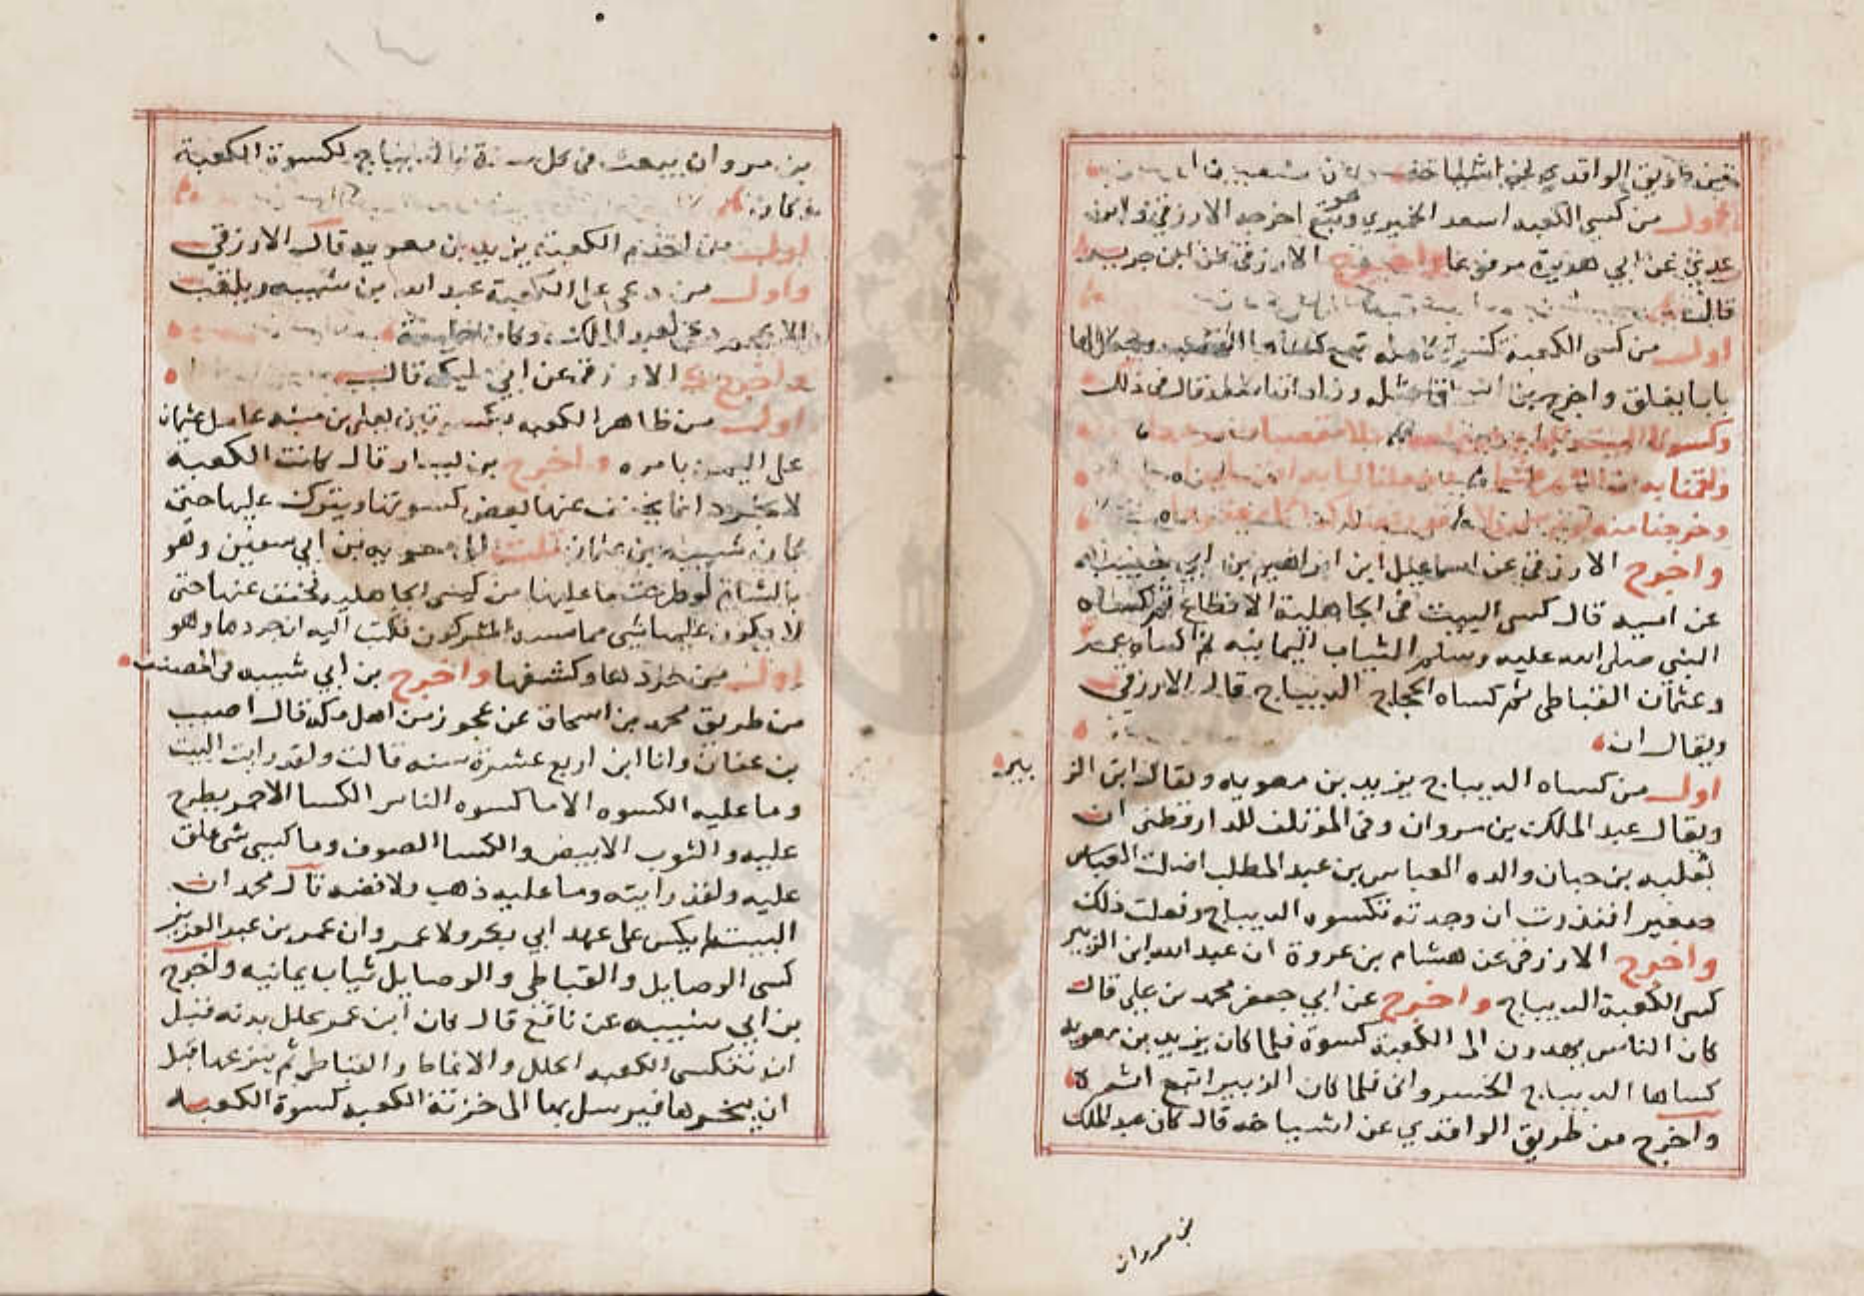 من طريق الواقدي عن اشياخه
اول من كسى الكعبه اسعد الحميري وهو تبع اخرجه الارزقي وابن
عدي عن ابي هريرة مرفوعا واخرج الارزقي عن ابن جريج
قال
اول من كسى الكعبة كسوة كاملة تبع كساها العصب وجعل لها
بابا يغلق واخرج بن اسحاق مثله وزاد انه قال في ذلك
وكسونا البيت
واقمنا به من الشهر عشرا وجعلنا لبابه
وخرجنا منه
واخرج الارزقي عن اسماعيل ابن ابراهيم بن ابي حبيبة
عن ابيه قال كسى البيت في الجاهلية الانطاع ثم كساه
النبي صلى الله عليه وسلم الثياب اليمانيه ثم كساه عمر
وعثمان القباطي ثم كساه الحجاج الديباج قال الارزقي
ويقال ان
اول من كساه الديباج يزيد بن معويه ويقال ابن الز بير
ويقال عبد الملك بن مروان وفي المؤتلف للدارقطني ان
نفليه بن حبان والده العباس بن عبد المطلب اضلت العباس
صغير افنذرت ان وجدته تكسوه الديباج ففعلت ذلك
واخرج الارزقي عن هشام بن عروة ان عبد الله ابن الزبير
كسى الكعبة الديباج واخرج عن ابي جعفر محمد بن علي قال
كان الناس يهدون الى الكعبة كسوة فلما كان يزيد بن معويه
كساها الديباج الخسرواني فلما كان الزبير اتبع اثره
واخرج من طريق الواقدي عن اشياخه قال كان عبد الملك
بن مروان
بن مروان يبعث في كل سنة بالديباج لكسوة الكعبة
وكان
اول من اخدم الكعبة يزيد بن معويه قال الارزقي
واول من دعى على الكعبة عبد الله بن شيبه ويلقب
الاعجم دعى لعبد الملك وكان خليفة
واخرج الارزقي عن ابي مليكه قال
اول من ظاهر الكعبه بكسوتين يعلى بن منبه عامل عثمان
على اليمن بامره واخرج بن يسار قال كانت الكعبة
لا تجرد انما يخفف عنها بعض كسوتها ويترك عليها حتى
كان شيبة بن عثمان فكتب الى معويه بن ابي سفين وهو
بالشام لو طرحت ما عليها من كسى الجاهليه فخفف عنها حتى
لا يكون عليها شي مما مسه المشركون فكتب اليه ان جردها وهو
اول من جردها وكشفها واخرج بن ابي شيبه في المصنف
من طريق محمد بن اسحاق عن عجوز من اهل مكه قال اصيب
بن عفان وانا ابن اربع عشرة سنه قالت ولقد رايت البيت
وما عليه الكسوه الا ما كسوه الناس الكسا الاحمر يطرح
عليه والثوب الابيض والكسا الصوف وما كسى شي علق
عليه ولقد رايته وما عليه ذهب ولا فضه قال محمد ان
البيت لم يكس على عهد ابي بكر ولا عمر وان عمر بن عبد العزيز
كسى الوصايل والقباطي والوصايل ثياب يمانيه واخرج
بن ابي شيبه عن نافع قال كان ابن عمر يجلل بدنه قبل
ان تكسى الكعبه الحلل والانماط والقباطي ثم ينزعها قبل
ان ينحرها فيرسل بها الى خزنة الكعبه كسوة الكعبه